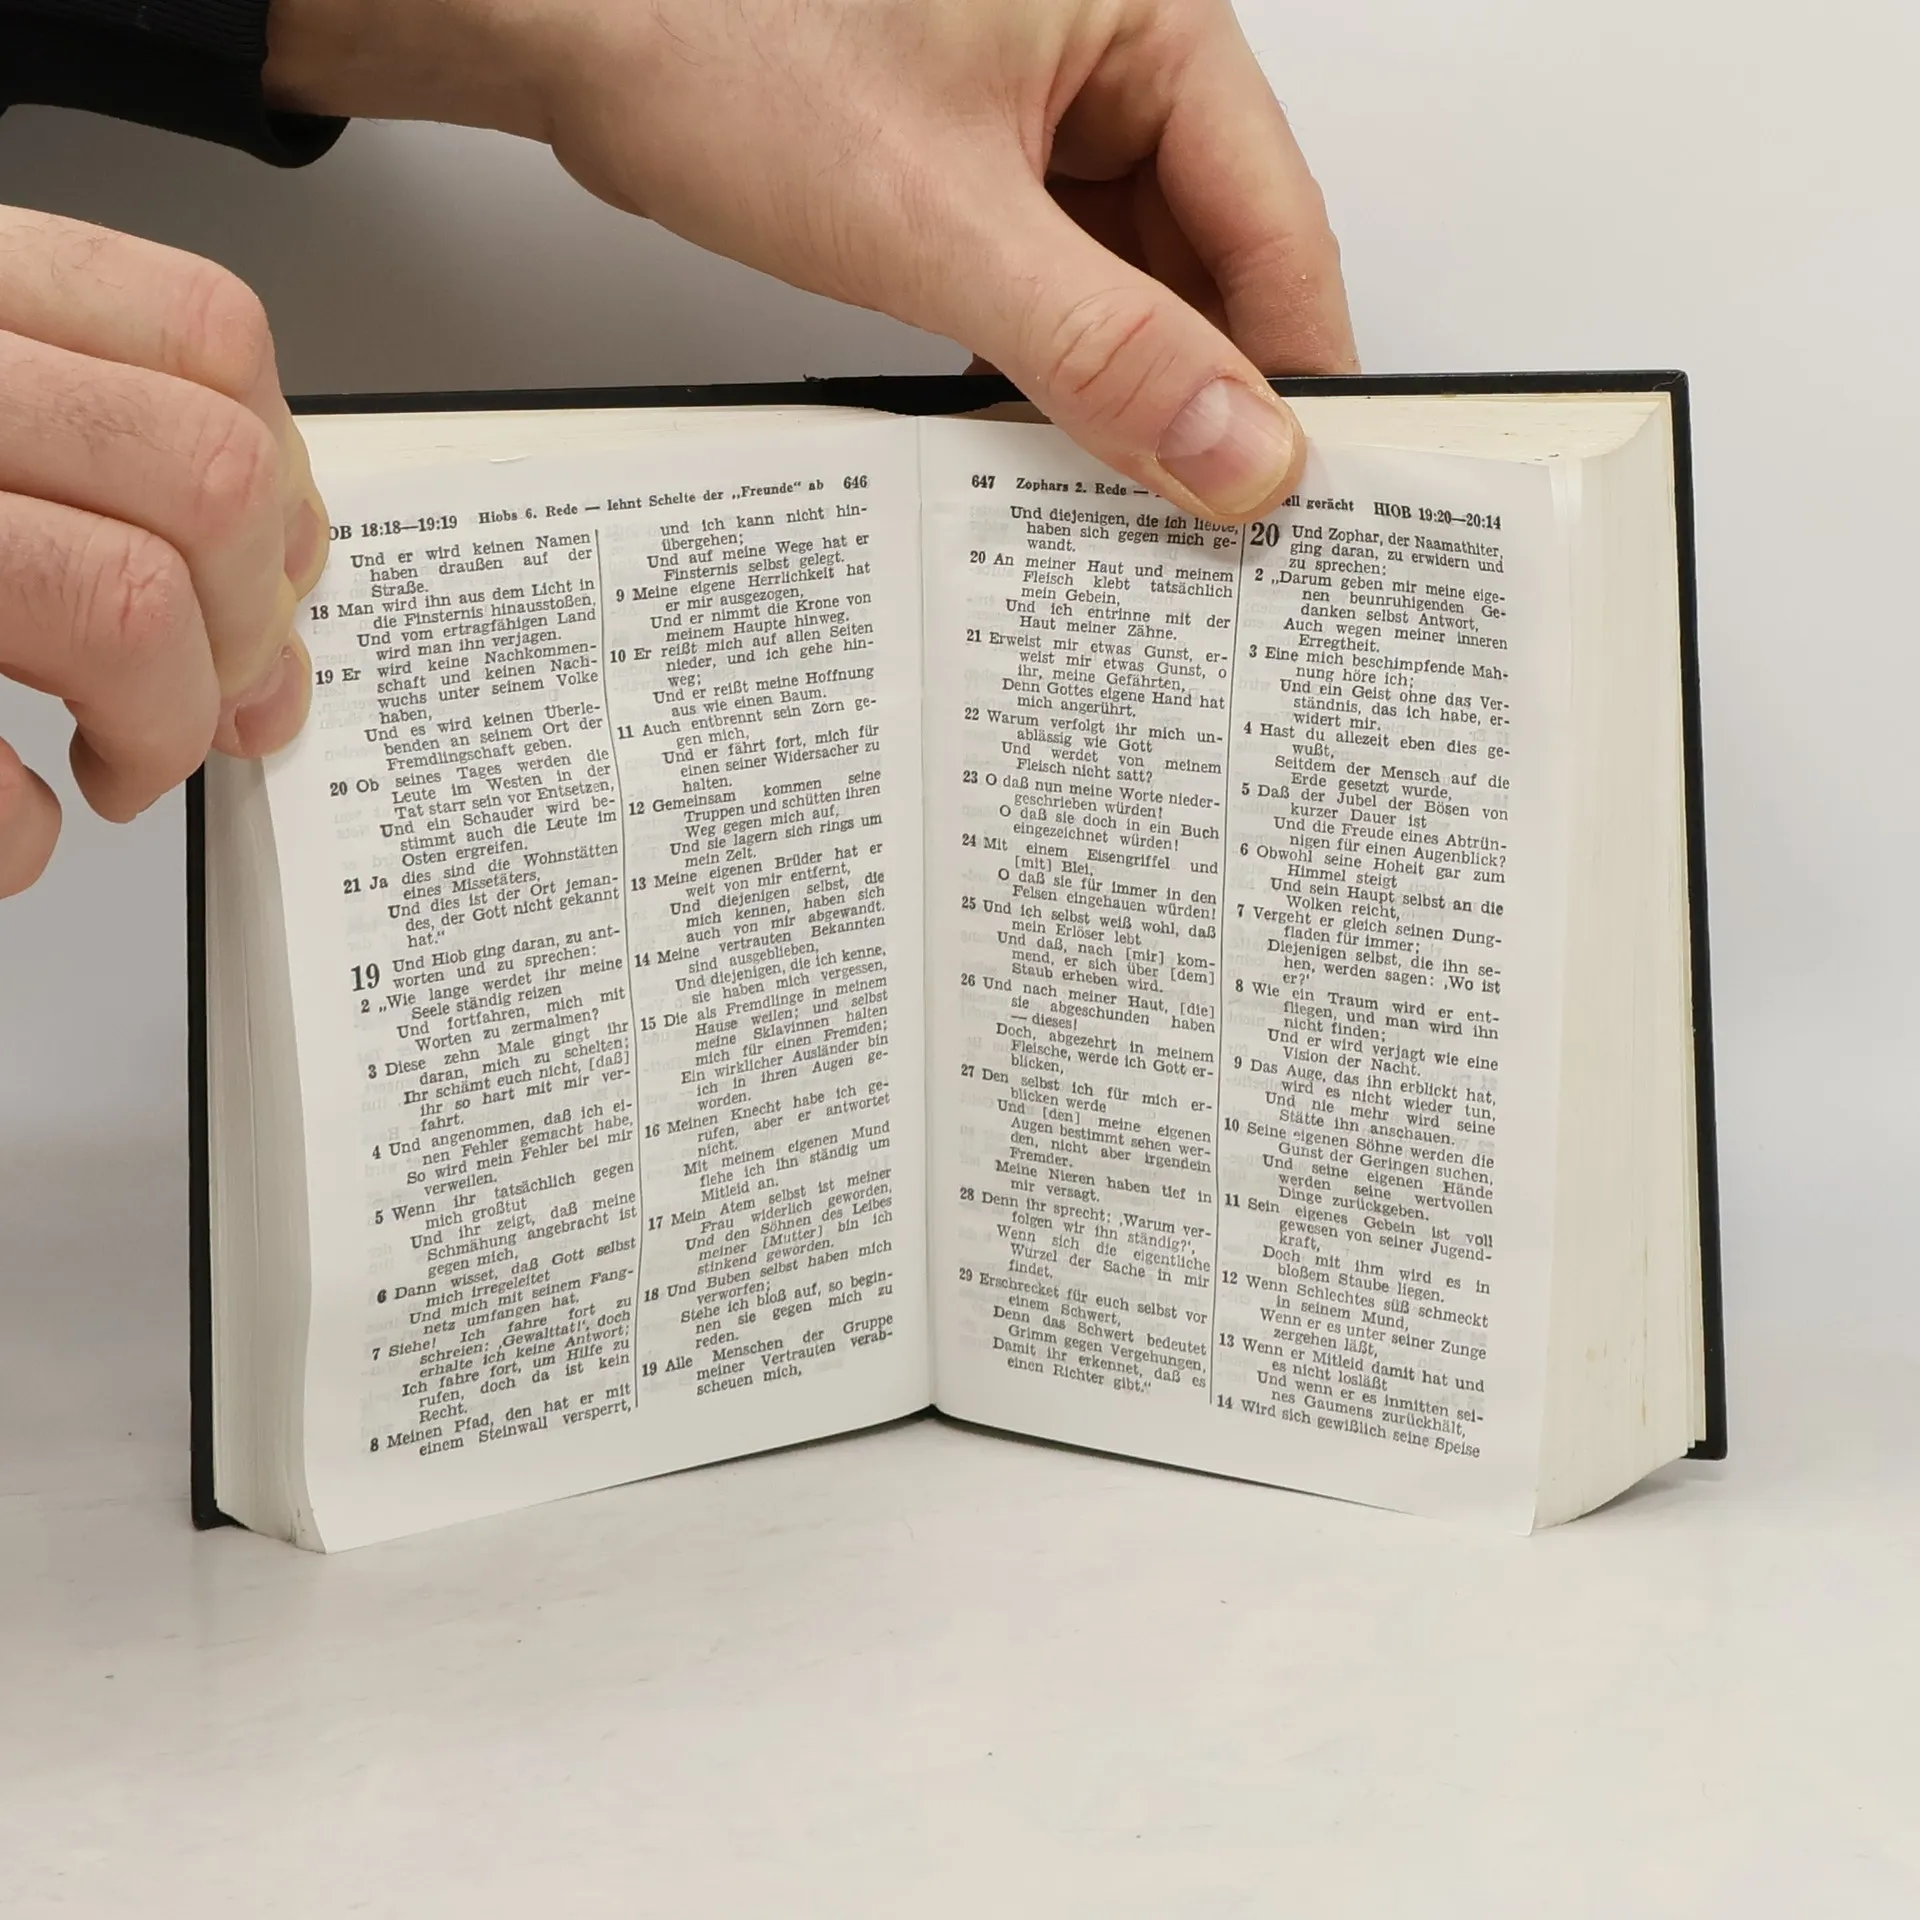 OB 18:18—19:19 Hiobs 6. Rede — lehnt Schelte der „Freunde“ ab 646
Und er wird keinen Namen
haben draußen auf der
Straße.
18 Man wird ihn aus dem Licht in
die Finsternis hinausstoßen,
Und vom ertragfähigen Land
wird man ihn verjagen.
19 Er wird keine Nachkommen-
schaft und keinen Nach-
wuchs unter seinem Volke
haben,
Und es wird keinen Überle-
benden an seinem Ort der
Fremdlingschaft geben.
20 Ob seines Tages werden die
Leute im Westen in der
Tat starr sein vor Entsetzen,
Und ein Schauder wird be-
stimmt auch die Leute im
Osten ergreifen.
21 Ja dies sind die Wohnstätten
eines Missetäters,
Und dies ist der Ort jeman-
des, der Gott nicht gekannt
hat.“
19 Und Hiob ging daran, zu ant-
worten und zu sprechen:
2 „Wie lange werdet ihr meine
Seele ständig reizen
Und fortfahren, mich mit
Worten zu zermalmen?
3 Diese zehn Male gingt ihr
daran, mich zu schelten;
Ihr schämt euch nicht, [daß]
ihr so hart mit mir ver-
fahrt.
4 Und angenommen, daß ich ei-
nen Fehler gemacht habe,
So wird mein Fehler bei mir
verweilen.
5 Wenn ihr tatsächlich gegen
mich großtut
Und ihr zeigt, daß meine
Schmähung angebracht ist
gegen mich,
6 Dann wisset, daß Gott selbst
mich irregeleitet
Und mich mit seinem Fang-
netz umfangen hat.
7 Siehe! Ich fahre fort zu
schreien: ‚Gewalttat!‘, doch
erhalte ich keine Antwort;
Ich fahre fort, um Hilfe zu
rufen, doch da ist kein
Recht.
8 Meinen Pfad, den hat er mit
einem Steinwall versperrt,
und ich kann nicht hin-
übergehen;
Und auf meine Wege hat er
Finsternis selbst gelegt.
9 Meine eigene Herrlichkeit hat
er mir ausgezogen,
Und er nimmt die Krone von
meinem Haupte hinweg.
10 Er reißt mich auf allen Seiten
nieder, und ich gehe hin-
weg;
Und er reißt meine Hoffnung
aus wie einen Baum.
11 Auch entbrennt sein Zorn ge-
gen mich,
Und er fährt fort, mich für
einen seiner Widersacher zu
halten.
12 Gemeinsam kommen seine
Truppen und schütten ihren
Weg gegen mich auf,
Und sie lagern sich rings um
mein Zelt.
13 Meine eigenen Brüder hat er
weit von mir entfernt,
Und diejenigen selbst, die
mich kennen, haben sich
auch von mir abgewandt.
14 Meine vertrauten Bekannten
sind ausgeblieben,
Und diejenigen, die ich kenne,
sie haben mich vergessen,
15 Die als Fremdlinge in meinem
Hause weilen; und selbst
meine Sklavinnen halten
mich für einen Fremden;
Ein wirklicher Ausländer bin
ich in ihren Augen ge-
worden.
16 Meinen Knecht habe ich ge-
rufen, aber er antwortet
nicht.
Mit meinem eigenen Mund
flehe ich ihn ständig um
Mitleid an.
17 Mein Atem selbst ist meiner
Frau widerlich geworden,
Und den Söhnen des Leibes
meiner [Mutter] bin ich
stinkend geworden.
18 Und Buben selbst haben mich
verworfen;
Stehe ich bloß auf, so begin-
nen sie gegen mich zu
reden.
19 Alle Menschen der Gruppe
meiner Vertrauten verab-
scheuen mich,
647 Zophars 2. Rede — ell gerächt HIOB 19:20—20:14
Und diejenigen, die ich liebte,
haben sich gegen mich ge-
wandt.
20 An meiner Haut und meinem
Fleisch klebt tatsächlich
mein Gebein,
Und ich entrinne mit der
Haut meiner Zähne.
21 Erweist mir etwas Gunst, er-
weist mir etwas Gunst, o
ihr, meine Gefährten,
Denn Gottes eigene Hand hat
mich angerührt.
22 Warum verfolgt ihr mich un-
ablässig wie Gott
Und werdet von meinem
Fleisch nicht satt?
23 O daß nun meine Worte nieder-
geschrieben würden!
O daß sie doch in ein Buch
eingezeichnet würden!
24 Mit einem Eisengriffel und
[mit] Blei,
O daß sie für immer in den
Felsen eingehauen würden!
25 Und ich selbst weiß wohl, daß
mein Erlöser lebt
Und daß, nach [mir] kom-
mend, er sich über [dem]
Staub erheben wird.
26 Und nach meiner Haut, [die]
sie abgeschunden haben
— dieses!
Doch, abgezehrt in meinem
Fleische, werde ich Gott er-
blicken,
27 Den selbst ich für mich er-
blicken werde
Und [den] meine eigenen
Augen bestimmt sehen wer-
den, nicht aber irgendein
Fremder.
Meine Nieren haben tief in
mir versagt.
28 Denn ihr sprecht: ‚Warum ver-
folgen wir ihn ständig?‘,
Wenn sich die eigentliche
Wurzel der Sache in mir
findet.
29 Erschrecket für euch selbst vor
einem Schwert,
Denn das Schwert bedeutet
Grimm gegen Vergehungen,
Damit ihr erkennet, daß es
einen Richter gibt.“
20 Und Zophar, der Naamathiter,
ging daran, zu erwidern und
zu sprechen:
2 „Darum geben mir meine eige-
nen beunruhigenden Ge-
danken selbst Antwort,
Auch wegen meiner inneren
Erregtheit.
3 Eine mich beschimpfende Mah-
nung höre ich;
Und ein Geist ohne das Ver-
ständnis, das ich habe, er-
widert mir.
4 Hast du allezeit eben dies ge-
wußt,
Seitdem der Mensch auf die
Erde gesetzt wurde,
5 Daß der Jubel der Bösen von
kurzer Dauer ist
Und die Freude eines Abtrün-
nigen für einen Augenblick?
6 Obwohl seine Hoheit gar zum
Himmel steigt
Und sein Haupt selbst an die
Wolken reicht,
7 Vergeht er gleich seinen Dung-
fladen für immer;
Diejenigen selbst, die ihn se-
hen, werden sagen: ‚Wo ist
er?‘
8 Wie ein Traum wird er ent-
fliegen, und man wird ihn
nicht finden;
Und er wird verjagt wie eine
Vision der Nacht.
9 Das Auge, das ihn erblickt hat,
wird es nicht wieder tun,
Und nie mehr wird seine
Stätte ihn anschauen.
10 Seine eigenen Söhne werden die
Gunst der Geringen suchen,
Und seine eigenen Hände
werden seine wertvollen
Dinge zurückgeben.
11 Sein eigenes Gebein ist voll
gewesen von seiner Jugend-
kraft,
Doch mit ihm wird es in
bloßem Staube liegen.
12 Wenn Schlechtes süß schmeckt
in seinem Mund,
Wenn er es unter seiner Zunge
zergehen läßt,
13 Wenn er Mitleid damit hat und
es nicht losläßt
Und wenn er es inmitten sei-
nes Gaumens zurückhält,
14 Wird sich gewißlich seine Speise